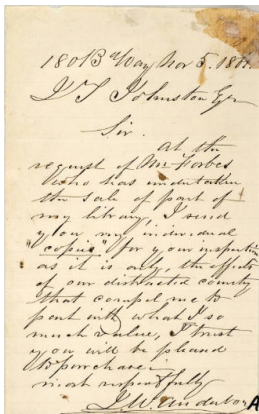 180 B'Way Nov 5. 18
J T Johnston Esqr
Sir.
at the
request of Mr Forbes
who has undertaken
the sale of part of
my library, I send
you my individual
"copies" for your inspection
as it is only, the effects
of our distracted country
that compel me to
part with what I so
much value, I trust
you will be pleased
to purchase.
most respectfully
J. W.
A